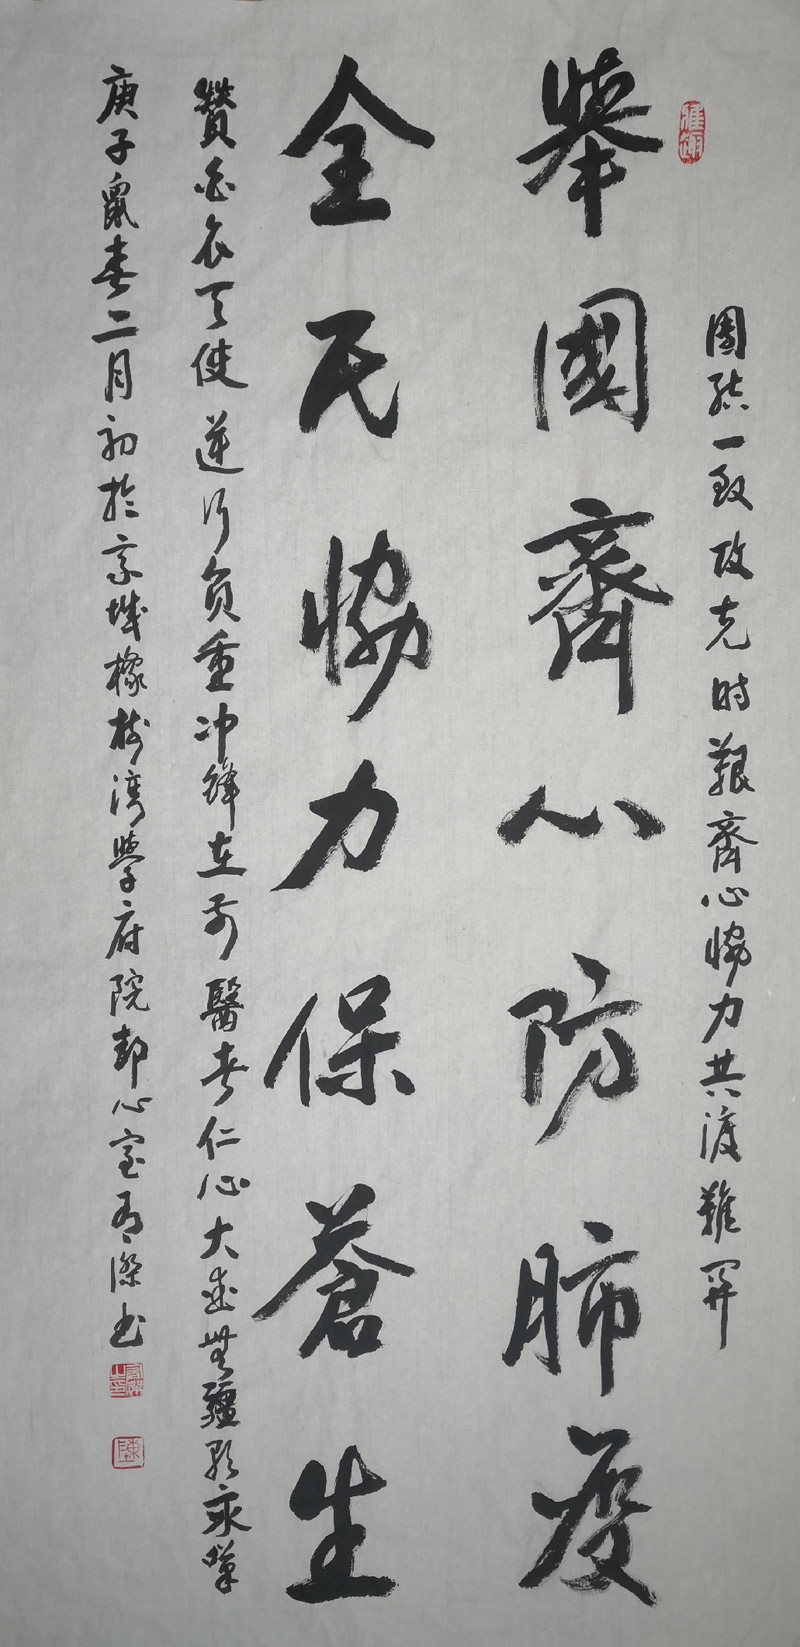 雅趣
團結一致攻克时艱齊心協力共渡難關
舉國齊心防肺疫
全民協力保蒼生
贊白衣天使逆行負重冲鋒在前醫者仁心大愛無疆影永
庚子鼠春二月初於京城橡树湾學府院静心室有傑书
陳